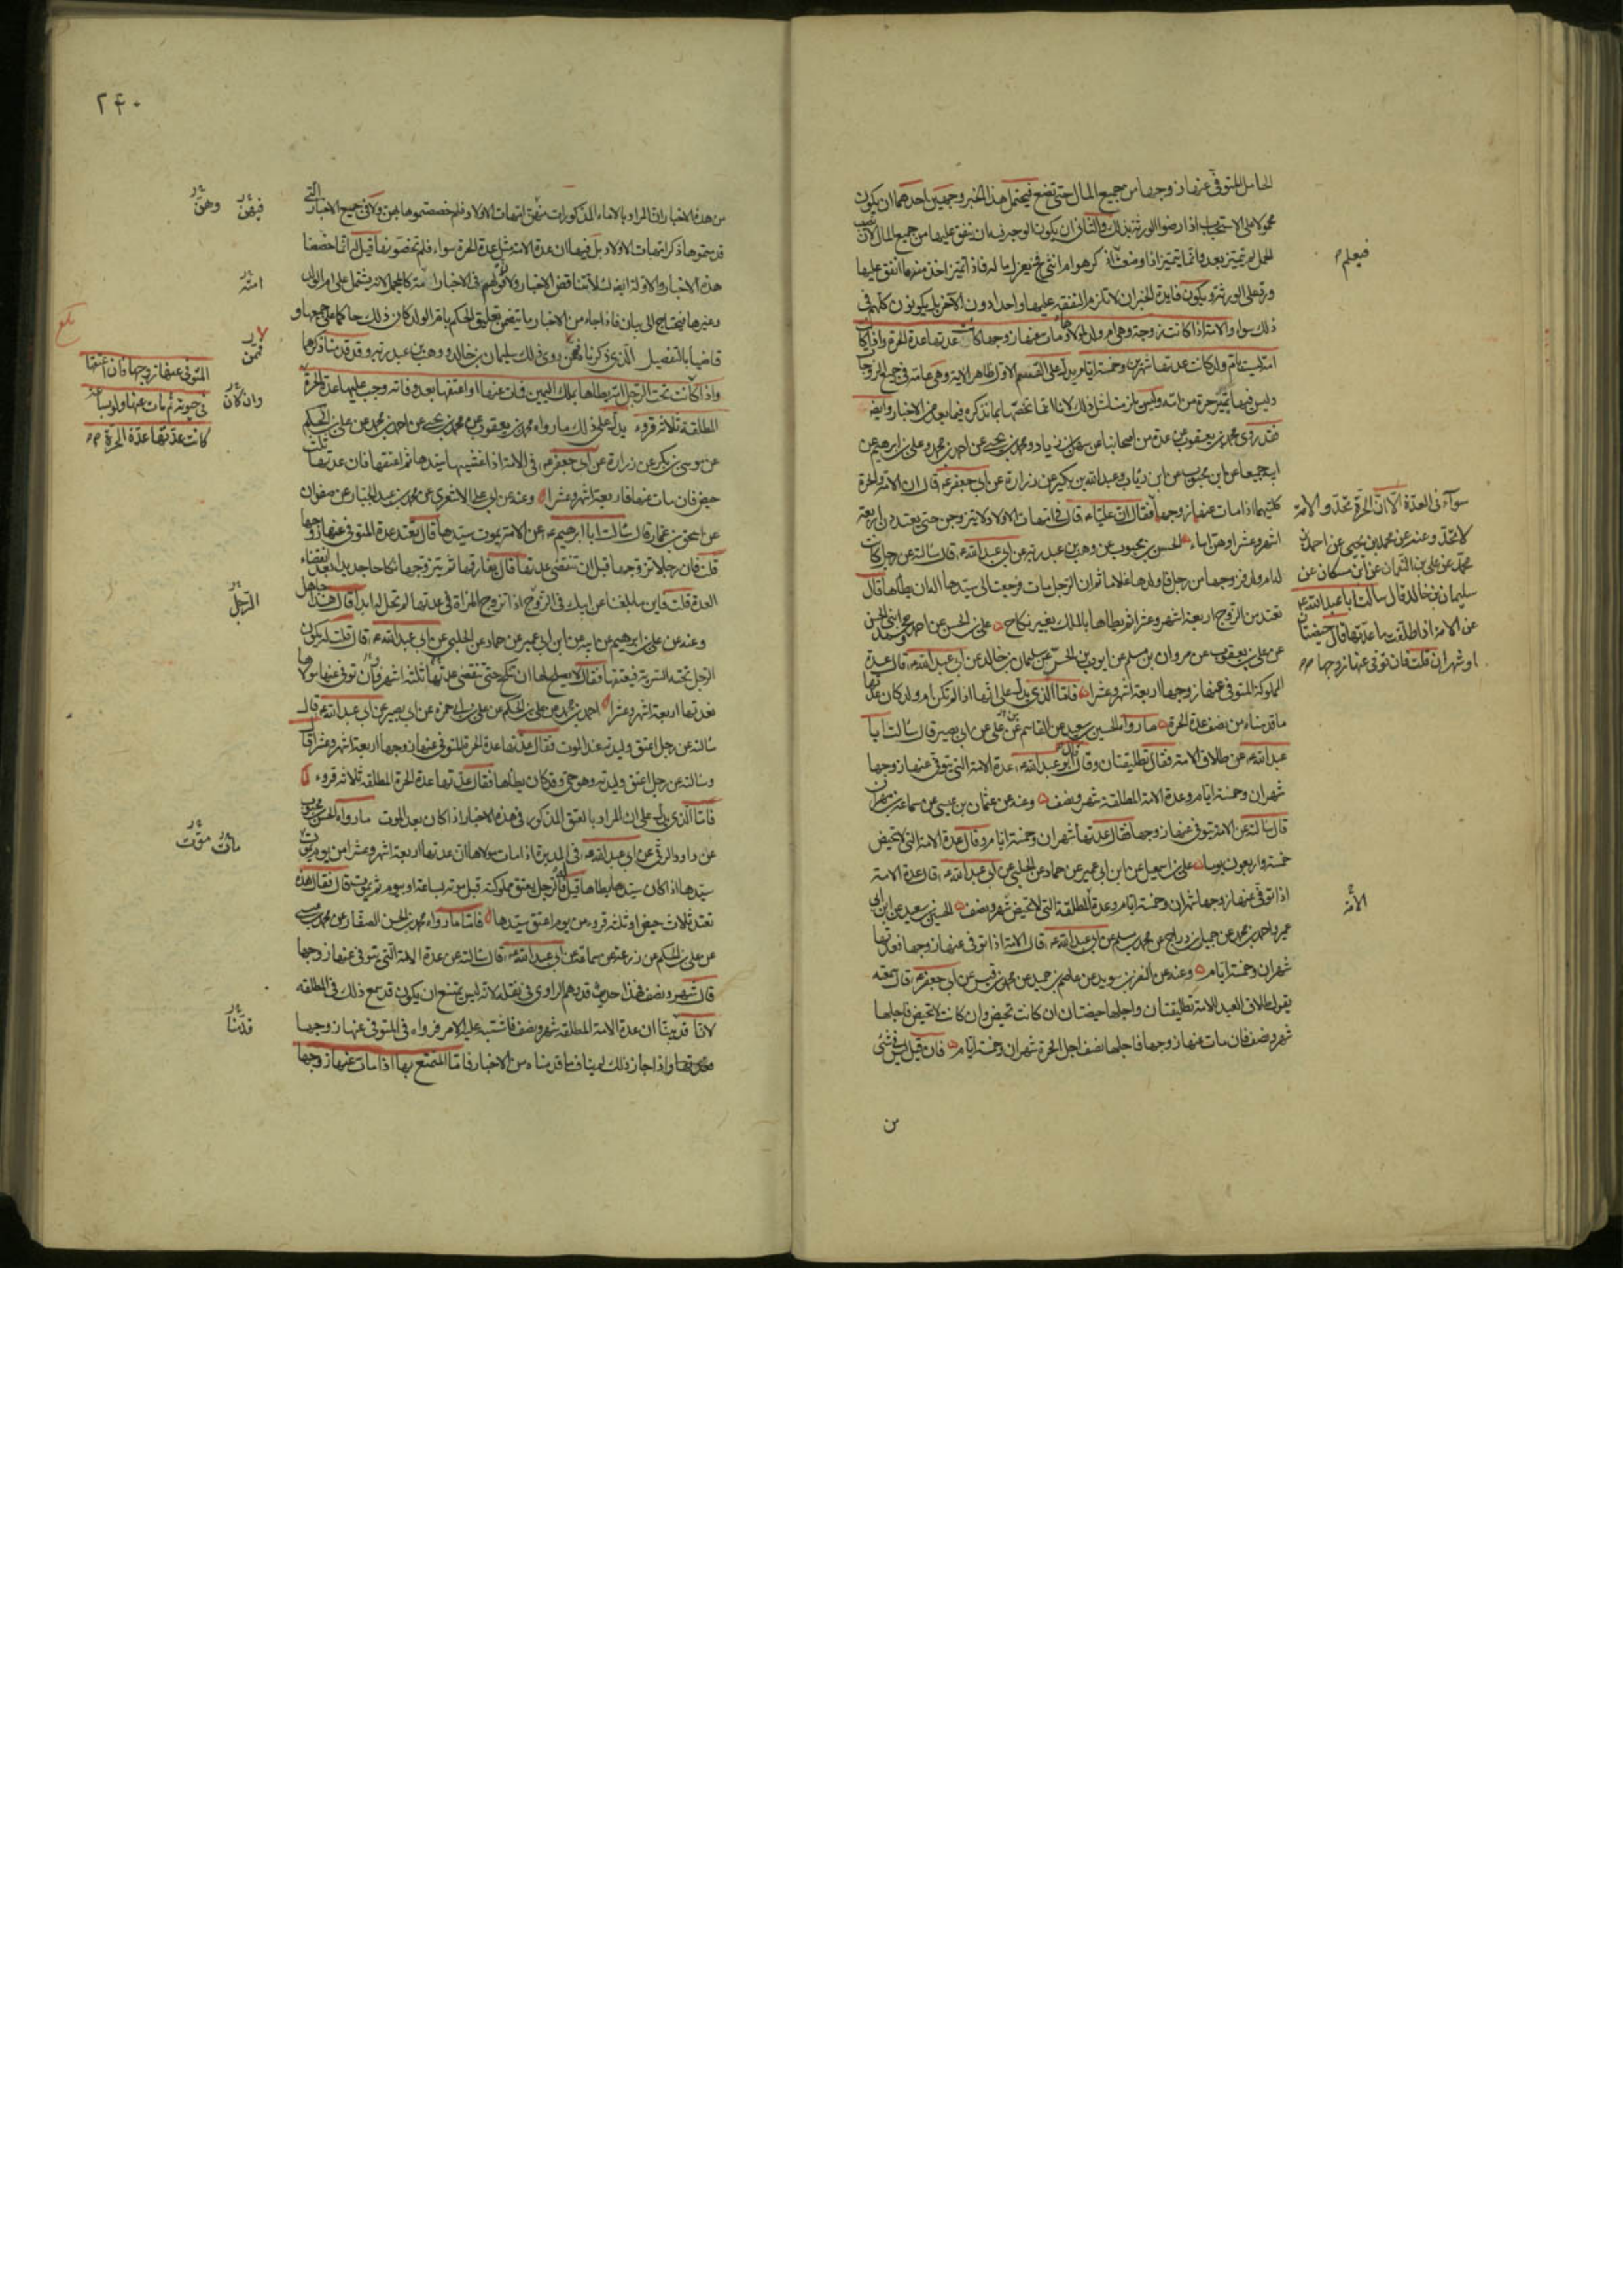 الحامل المتوفى عنها زوجها من جميع المال حتى تضع فيحتمل هذا الخبر وجهين احدهما ان يكون
محمولا على الاستحباب اذا رضوا الورثة بذلك والثاني ان يكون الوجه فيه ان ينفق عليها من جميع المال لان نصيب
الحمل لم يتميز بعد وانما يتميز اذا وضعت اذكر هو ام انثى فيعزل ماله فاذا تميز اخذ منه ما انفق عليها
ورد على الورثة ويكون فايدة الخبر ان لا تلزم النفقة عليها واحدا دون الآخر بل يكونون كلهم في
ذلك سواء والامة اذا كانت زوجة وهي ام ولد لمولاها ومات عنها زوجها كانت عدتها عدة الحرة وان كانت
امة ليست بام ولد كانت عدتها شهرين وخمسة ايام يدل على القسم الاول ظاهر الاية وهي عامة في جميع الزوجات
وليس فيها تميز حرة من امة وليس يلزمنا مثل ذلك لانا انما نخصها بما نذكره فيما بعد من الاخبار وايضا
فقد روى محمد بن يعقوب عن عدة من اصحابنا عن سهل بن زياد ومحمد بن يحيى عن احمد بن محمد وعلي بن ابرهيم عن
ابيه جميعا عن ابن محبوب عن ابن رئاب وعبد الله بن بكير عن زرارة عن ابي جعفر ع قال ان الامة والحرة
كلتيهما اذا مات عنها زوجها فقال ان عليا ع قال في امهات الاولاد لا يتزوجن حتى يعتددن اربعة
اشهر وعشرا وهن اماء الحسن بن محبوب عن وهب بن عبد ربه عن ابي عبد الله ع قال سالته عن رجل كانت
له ام ولد فزوجها من رجل فاولدها غلاما ثم ان الرجل مات فرجعت الى سيدها اله ان يطأها قال
تعتد من الزوج اربعة اشهر وعشرا ثم يطأها بالملك بغير نكاح علي بن الحسن عن احمد ومحمد ابني الحسن
عن علي بن يعقوب عن مروان بن مسلم عن ايوب بن الحر عن سليمان بن خالد عن ابي عبد الله ع قال عدة
المملوكة المتوفى عنها زوجها اربعة اشهر وعشرا فاما الذي يدل على انها اذا لم تكن ام ولد كان عدتها
ما قدمناه من نصف عدة الحرة ما رواه الحسين بن سعيد عن القاسم عن علي عن ابي بصير قال سالت ابا
عبد الله ع عن طلاق الامة فقال تطليقتان وقال قال ابو عبد الله ع عدة الامة التي يتوفى عنها زوجها
شهران وخمسة ايام وعدة الامة المطلقة شهر ونصف وعنه عن عثمان بن عيسى عن سماعة بن مهران
قال سالته عن الامة يتوفى عنها زوجها فقال عدتها شهران وخمسة ايام وقال عدة الامة التي لا تحيض
خمسة واربعون يوما علي بن اسمعيل عن ابن ابي عمير عن حماد عن الحلبي عن ابي عبد الله ع قال عدة الامة
اذا توفى عنها زوجها شهران وخمسة ايام وعدة المطلقة التي لا تحيض شهر ونصف الحسين بن سعيد عن ابن ابي
عمير واحمد بن محمد عن جميل بن دراج عن محمد بن مسلم عن ابي عبد الله ع قال الامة اذا توفى عنها زوجها فعدتها
شهران وخمسة ايام وعنه عن النضر بن سويد عن عاصم بن حميد عن محمد بن قيس عن ابي جعفر ع قال سمعته
يقول طلاق العبد للامة تطليقتان واجلها حيضتان ان كانت تحيض وان كانت لا تحيض فاجلها
شهر ونصف فان مات عنها زوجها فاجلها نصف اجل الحرة شهران وخمسة ايام فان قيل ليس في شئ
من
فيعلم
سوآء في العدة الا ان الحرة تحد والامة
لا تحد وعنه عن محمد بن يحيى عن احمد بن
محمد عن علي بن النعمان عن ابن مسكان عن
سليمان بن خالد قال سالت ابا عبد الله ع
عن الامة اذا طلقت ما عدتها قال حيضتان
او شهران قلت فان توفى عنها زوجها
الأمة
٢٤٠
من هذه الاخبار ان المراد بالاماء المذكورات منهن امهات الاولاد فلم خصصتموها بهن ولا في جميع الاخبار التي
قدمتموها ذكر امهات الاولاد بل فيها ان عدة الامة مثل عدة الحرة سواء فلم تخصونها قيل له انا خصصنا
هذه الاخبار والاولة ايضا لئلا تتناقض الاخبار ولا قولهم في الاخبار امة كالمجمل لانه يشتمل على ام الولد
وغيرها فيحتاج الى بيان فاذا جاء من الاخبار ما يتضمن تعليق الحكم بام الولد كان ذلك حاكما على جميعها و
قاضيا بالتفصيل الذي ذكرناه فمن روى ذلك سليمان بن خالد ووهب بن عبد ربه وقد قدمنا ذكرها
واذا كانت تحت الرجل امة يطاها بملك اليمين فمات عنها او اعتقها بعد وفاته وجب عليها عدة الحرة
المطلقة ثلاثة قروء يدل على ذلك ما رواه محمد بن يعقوب عن محمد بن يحيى عن احمد بن محمد عن علي بن الحكم
عن موسى بن بكر عن زرارة عن ابي جعفر ع في الامة اذا غشيها سيدها ثم اعتقها فان عدتها ثلث
حيض فان مات عنها فاربعة اشهر وعشرا وعنه عن ابي علي الاشعري عن محمد بن عبد الجبار عن صفوان
عن اسحق بن عمار قال سالت ابا ابرهيم ع عن الامة يموت سيدها قال تعتد عدة المتوفى عنها زوجها
قلت فان رجلا تزوجها قبل ان تنقضي عدتها قال يفارقها ثم يتزوجها نكاحا جديدا بعد انقضاء
العدة قلت فاين ما بلغنا عن ابيك في الرجل اذا تزوج المراة في عدتها لم تحل له ابدا قال هذا جاهل
وعنه عن علي بن ابرهيم عن ابيه عن ابن ابي عمير عن حماد عن الحلبي عن ابي عبد الله ع قال قلت له يكون
الرجل تحته السرية فيعتقها فقال لا يصلح لها ان تنكح حتى تنقضي عدتها ثلثة اشهر فان توفى عنها مولاها
فعدتها اربعة اشهر وعشرا احمد بن محمد عن علي بن الحكم عن علي بن ابي حمزة عن ابي بصير عن ابي عبد الله ع قال
سالته عن رجل اعتق وليدته عند الموت فقال عدتها عدة الحرة المتوفى عنها زوجها اربعة اشهر وعشرا قال
وسالته عن رجل اعتق وليدته وهو حي وقد كان يطاها فقال عدتها عدة الحرة المطلقة ثلاثة قروء
فاما الذي يدل على ان المراد بالعتق المذكور في هذه الاخبار اذا كان بعد الموت ما رواه الحسن بن محبوب
عن داود الرقي عن ابي عبد الله ع في المدبرة اذا مات مولاها ان عدتها اربعة اشهر وعشرا من يوم يموت
سيدها اذا كان سيدها يطاها قيل له فالرجل يعتق مملوكته قبل موته بساعة او بيوم ثم يموت قال فقال هذه
تعتد ثلاث حيض او ثلثة قروء من يوم اعتق سيدها فاما ما رواه محمد بن الحسن الصفار عن محمد بن عيسى
عن علي بن الحكم عن زرعة عن سماعة عن ابي عبد الله ع قال سالته عن عدة الامة التي يتوفى عنها زوجها
قال شهر ونصف فهذا حديث قد وهم الراوي في نقله لانه ليس يمتنع ان يكون قد سمع ذلك في المطلقة
لانا قد بينا ان عدة الامة المطلقة شهر ونصف فاشتبه عليه الامر فرواه في المتوفى عنها زوجها
واذا جاز ذلك لم يناف ما قدمناه من الاخبار فاما المتمتع بها اذا مات عنها زوجها
فيهن
وهن
امة
فمن
بلغ
المتوفى عنها زوجها فان اعتقها
في حيوته ثم مات عنها ولو بساعة
كانت عدتها عدة الحرة
وان كان
الرجل
مات
موت
قدمنا